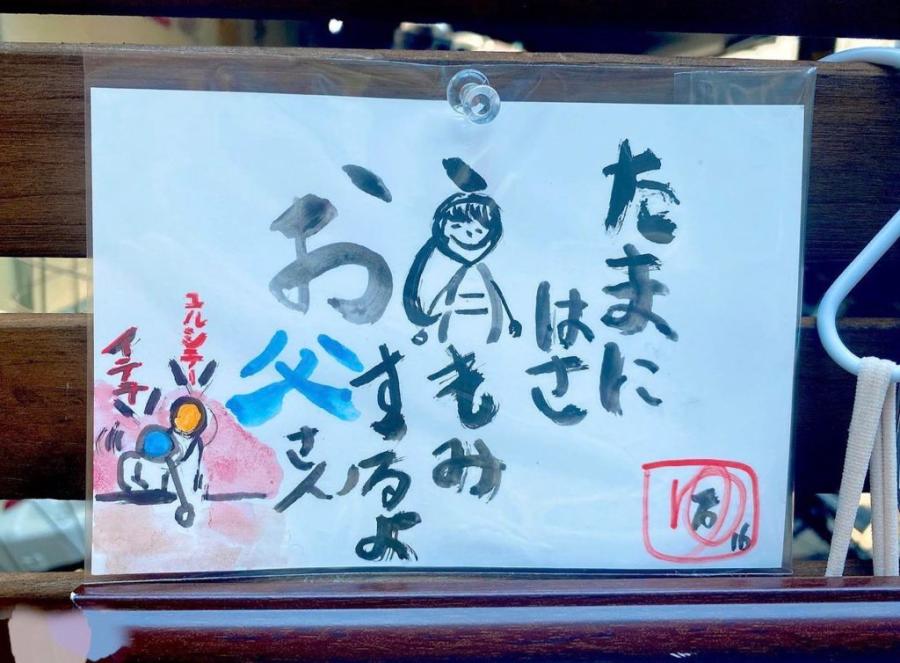 たまに
はさ
肩もみ
するよ
お父さん
ユルシテー
イテテ
ゆ
16